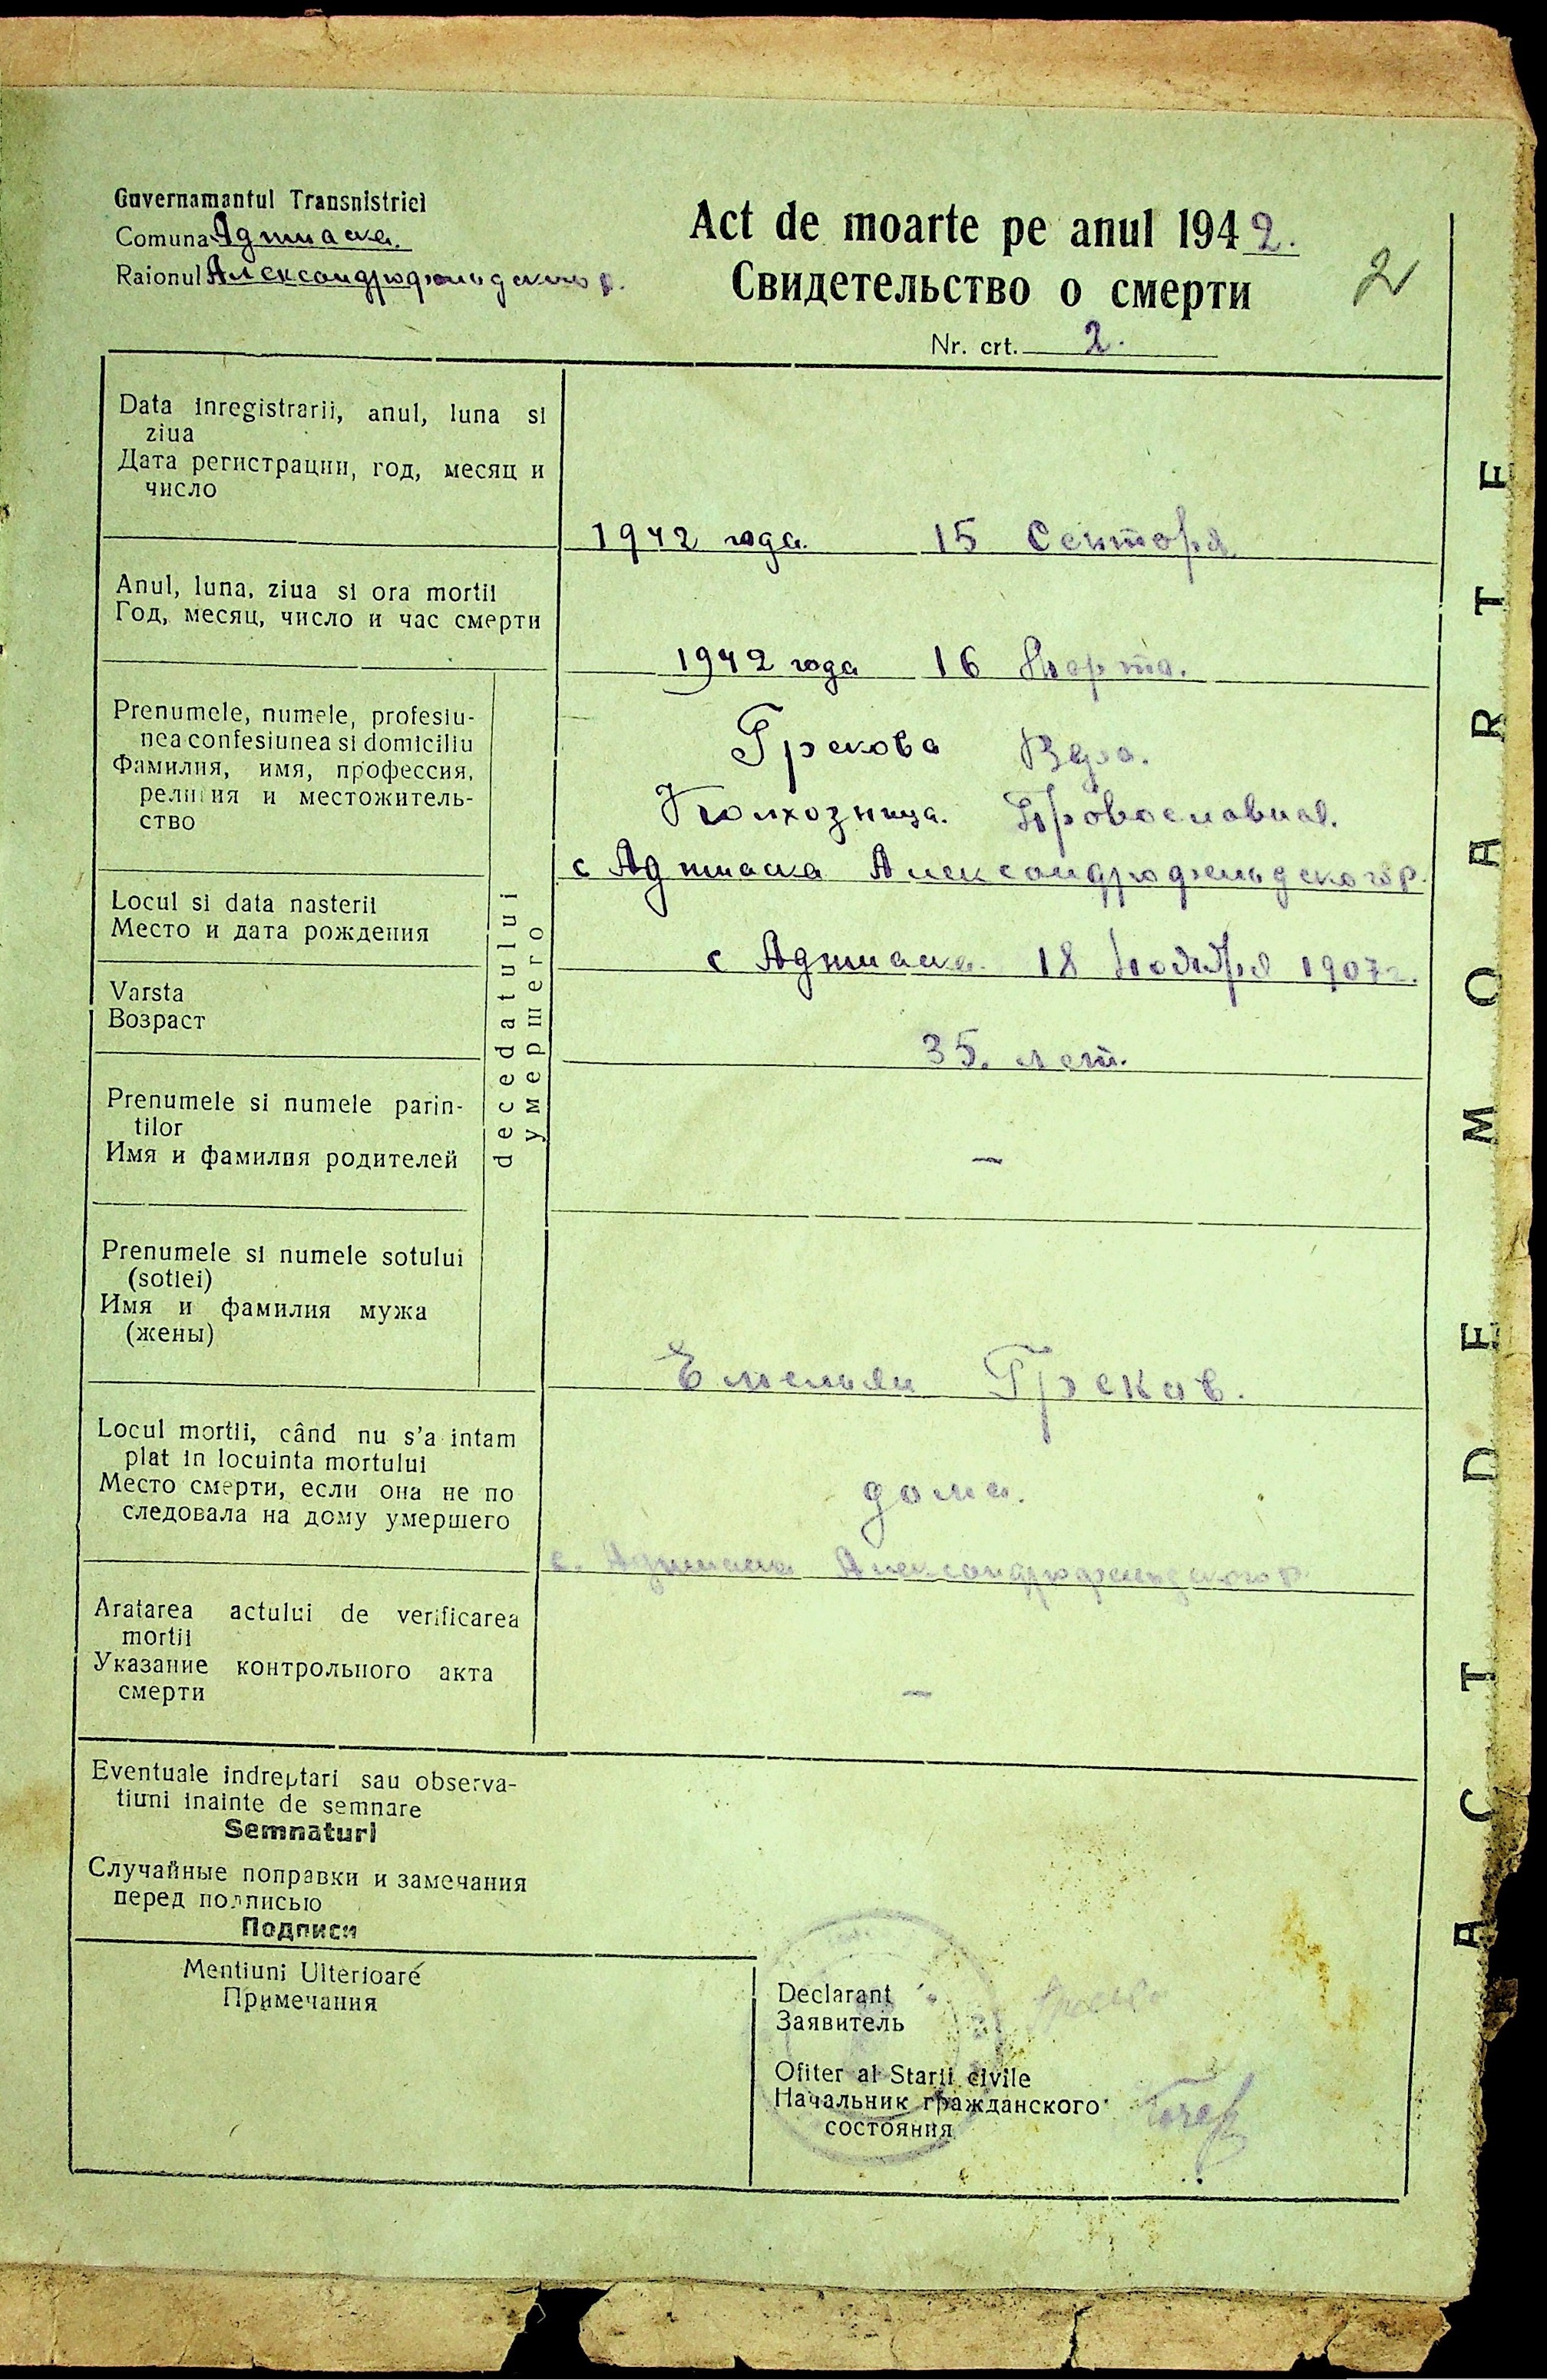 Guvernamantul Transnistriei
Comuna Аджиаска.
Raionul Александрофельдского р.
Act de moarte pe anul 1942.
Свидетельство о смерти
2
Nr. crt. 2.
Data inregistrarii, anul, luna si
ziua
Дата регистрации, год, месяц и
число
1942 года. 15 Сентября
Anul, luna, ziua si ora mortii
Год, месяц, число и час смерти
1942 года 16 Марта.
decedatului
умершего
Prenumele, numele, profesiu-
nea confesiunea si domiciliu
Фамилия, имя, профессия,
религия и местожитель-
ство
Грекова Вера.
Колхозница. Провославная.
с Аджиаска Александрофельдского р.
Locul si data nasterii
Место и дата рождения
с Аджиаска. 18 Ноября 1907 г.
Varsta
Возраст
35. лет.
Prenumele si numele parin-
tilor
Имя и фамилия родителей
—
Prenumele si numele sotului
(sotiei)
Имя и фамилия мужа
(жены)
Емельян Греков.
Locul mortii, când nu s'a intam
plat in locuinta mortului
Место смерти, если она не по
следовала на дому умершего
дома.
с. Аджиаска Александрофельдского р.
Aratarea actului de verificarea
mortii
Указание контрольного акта
смерти
—
Eventuale indreptari sau observa-
tiuni inainte de semnare
Semnaturi
Случайные поправки и замечания
перед подписью
Подписи
Mentiuni Ulterioare
Примечания
Declarant
Заявитель
Ofiter al Starii civile
Начальник гражданского
состояния
ACT DE MOARTE